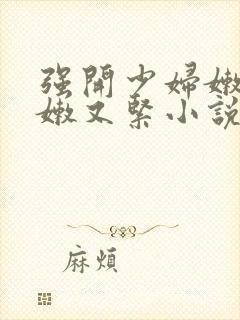 强開少婦嫩
嫩又緊小說
麻煩